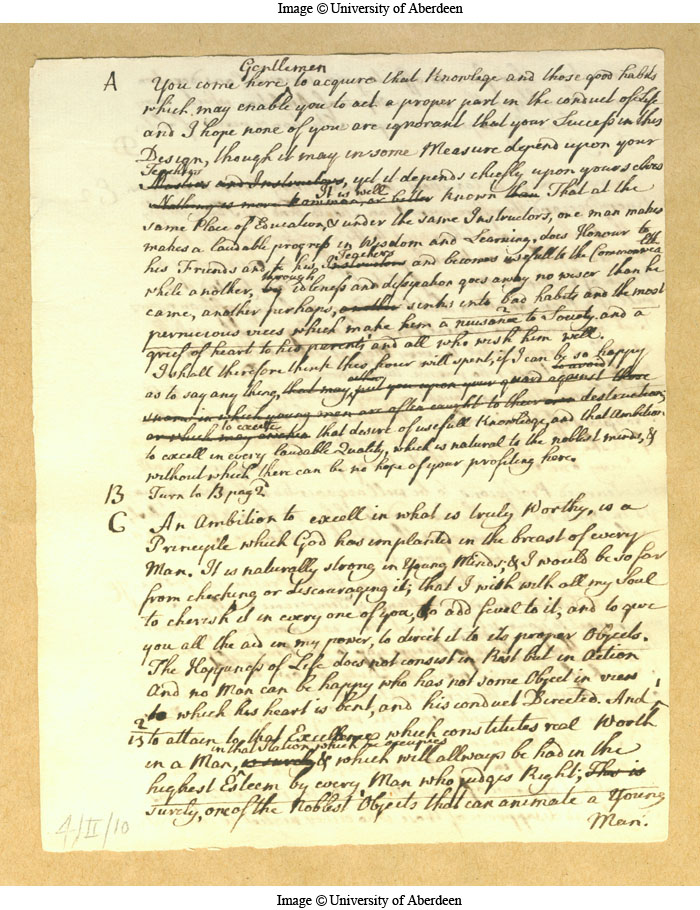 Image © University of Aberdeen
Gentlemen
A You come here to acquire that Knowlege and those good habits
which may enable you to act a proper part in the conduct of Life
and I hope none of you are ignorant that your Success in this
Design, though it may in some Measure depend upon your
Teachers
Masters and Instructors, yet it depends chiefly upon yourselves
It is well
Nothing is more common, or better known than That at the
same Place of Education, & under the same Instructors, one man makes
makes a laudable progress in Wisdom and Learning, does Honour to
his Friends and to his Instructors and becomes usefull to the Commonwealth
Teachers
through
while another, by idleness and dissipation goes away no wiser than he
came, another perhaps, another sinks into bad habits and the most
pernicious vices which make him a nuisance to Society and a
grief of heart to his parents and all who wish him well.
I shall therefore think this hour well spent, if I can be so happy
as to say any thing, that may, either put you upon your guard against those
to avoid
snares in which young men are often caught to their own destruction,
to excite
or which may awaken that desire of usefull Knowledge, and that Ambition
to excell in every laudable Quality, which is natural to the noblest minds, &
without which there can be no hope of your profiting here.
B Turn to B pag 2d
C An Ambition to excell in what is truly Worthy, is a
Principle which God has implanted in the breast of every
Man. It is naturally strong in Young Minds, & I would be so far
from checking or discouraging it; that I wish with all my Soul
to cherish it in every one of you, to add fewel to it, and to give
you all the aid in my power, to direct it to its proper Objects.
The Happiness of Life does not consist in Rest but in Action
And no Man can be happy who has not some Object in view
to which his heart is bent, and his conduct Directed. And
2/15 to attain to that Excellence which constitutes real Worth
in that Station which he occupies
in a Man, is surely & which will allways be had in the
highest Esteem by every Man who judges Right; This is
surely, one of the Noblest Objects that can animate a Young
Man.
4/II/10
Image © University of Aberdeen